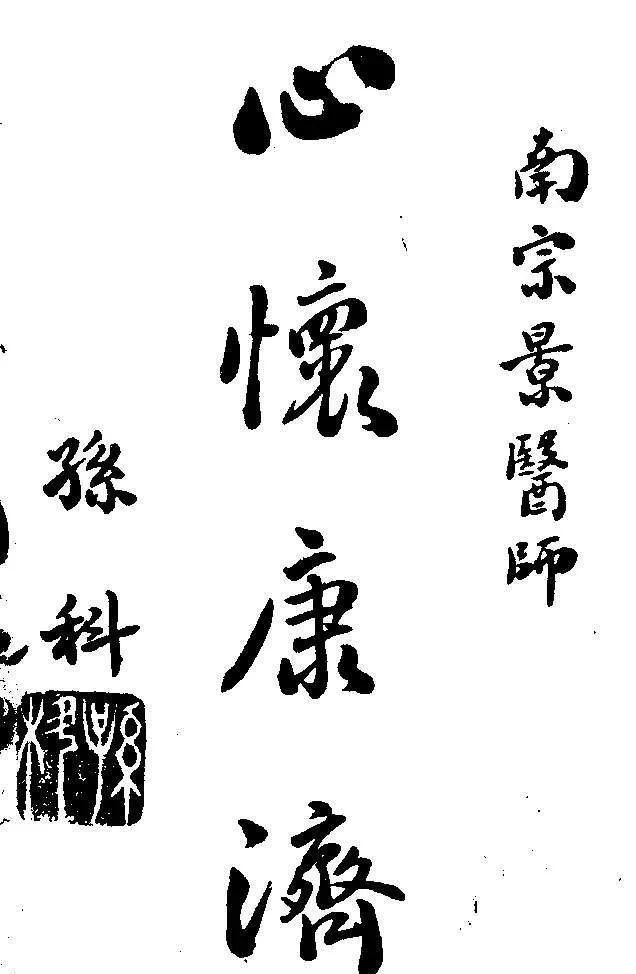 南宗景醫師
心懷康濟
孫科
孫科